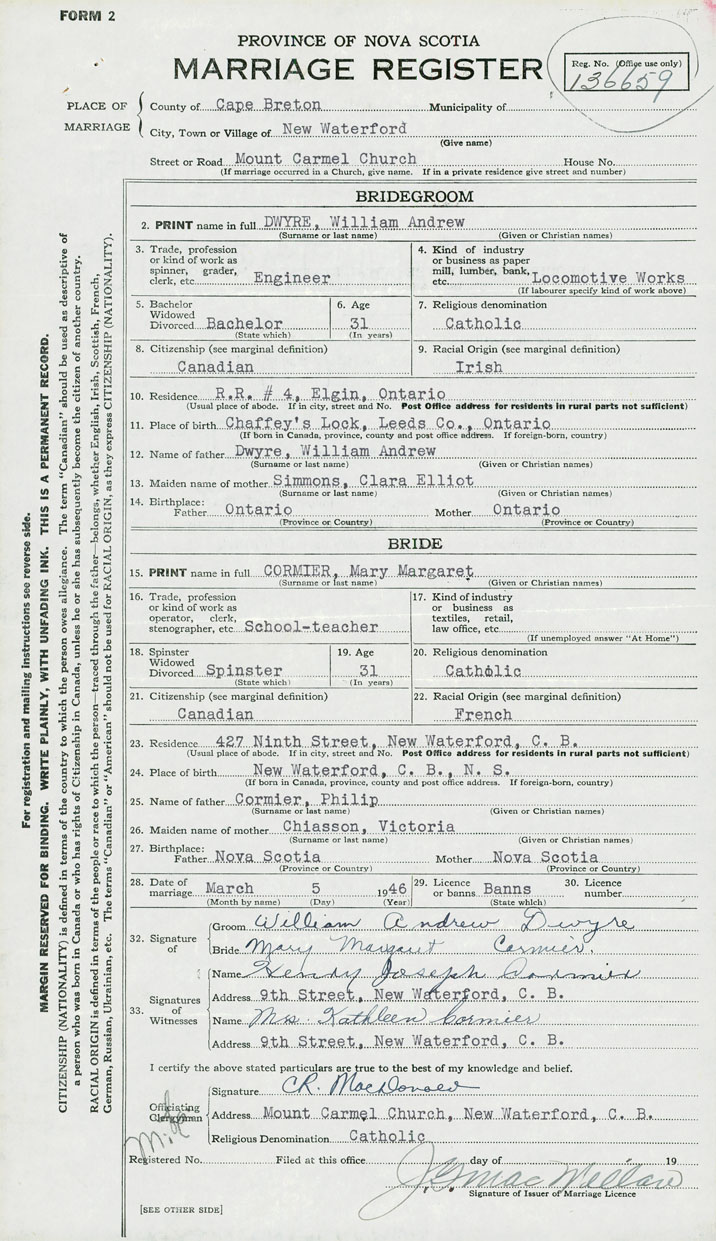 FORM 2
PROVINCE OF NOVA SCOTIA
MARRIAGE REGISTER
Reg. No. (Office use only)
136659
PLACE OF MARRIAGE
County of Cape Breton Municipality of
City, Town or Village of New Waterford
(Give name)
Street or Road Mount Carmel Church House No.
(If marriage occurred in a Church, give name. If in a private residence give street and number)
BRIDEGROOM
2. PRINT name in full DWYRE, William Andrew
(Surname or last name) (Given or Christian names)
3. Trade, profession or kind of work as spinner, grader, clerk, etc. Engineer
4. Kind of industry or business as paper mill, lumber, bank, etc. Locomotive Works
(If labourer specify kind of work above)
5. Bachelor Widowed Divorced Bachelor
(State which)
6. Age 31
(In years)
7. Religious denomination
Catholic
8. Citizenship (see marginal definition)
Canadian
9. Racial Origin (see marginal definition)
Irish
10. Residence R.R. # 4, Elgin, Ontario
(Usual place of abode. If in city, street and No. Post Office address for residents in rural parts not sufficient)
11. Place of birth Chaffey's Lock, Leeds Co., Ontario
(If born in Canada, province, county and post office address. If foreign-born, country)
12. Name of father Dwyre, William Andrew
(Surname or last name) (Given or Christian names)
13. Maiden name of mother Simmons, Clara Elliot
(Surname or last name) (Given or Christian names)
14. Birthplace:
Father Ontario Mother Ontario
(Province or Country) (Province or Country)
BRIDE
15. PRINT name in full CORMIER, Mary Margaret
(Surname or last name) (Given or Christian names)
16. Trade, profession or kind of work as operator, clerk, stenographer, etc. School-teacher
17. Kind of industry or business as textiles, retail, law office, etc.
(If unemployed answer "At Home")
18. Spinster Widowed Divorced Spinster
(State which)
19. Age 31
(In years)
20. Religious denomination
Catholic
21. Citizenship (see marginal definition)
Canadian
22. Racial Origin (see marginal definition)
French
23. Residence 427 Ninth Street, New Waterford, C. B.
(Usual place of abode. If in city, street and No. Post Office address for residents in rural parts not sufficient)
24. Place of birth New Waterford, C. B., N. S.
(If born in Canada, province, county and post office address. If foreign-born, country)
25. Name of father Cormier, Philip
(Surname or last name) (Given or Christian names)
26. Maiden name of mother Chiasson, Victoria
(Surname or last name) (Given or Christian names)
27. Birthplace:
Father Nova Scotia Mother Nova Scotia
(Province or Country) (Province or Country)
28. Date of marriage March 5 1946
(Month by name) (Day) (Year)
29. Licence or banns Banns
(State which)
30. Licence number
32. Signature of
Groom William Andrew Dwyre
Bride Mary Margaret Cormier.
33. Signatures of Witnesses
Name Henry Joseph Cormier
Address 9th Street, New Waterford, C. B.
Name Mrs. Kathleen Cormier
Address 9th Street, New Waterford, C. B.
I certify the above stated particulars are true to the best of my knowledge and belief.
Officiating Clergyman
Signature C.R. MacDonald
Address Mount Carmel Church, New Waterford, C. B.
Religious Denomination Catholic
Registered No. Filed at this office day of 19
Signature of Issuer of Marriage Licence
[SEE OTHER SIDE]
For registration and mailing instructions see reverse side.
MARGIN RESERVED FOR BINDING. WRITE PLAINLY, WITH UNFADING INK. THIS IS A PERMANENT RECORD.
CITIZENSHIP (NATIONALITY) is defined in terms of the country to which the person owes allegiance. The term "Canadian" should be used as descriptive of
a person who was born in Canada or who has rights of Citizenship in Canada, unless he or she has subsequently become the citizen of another country.
RACIAL ORIGIN is defined in terms of the people or race to which the person—traced through the father—belongs, whether English, Irish, Scottish, French,
German, Russian, Ukrainian, etc. The terms "Canadian" or "American" should not be used for RACIAL ORIGIN, as they express CITIZENSHIP (NATIONALITY).